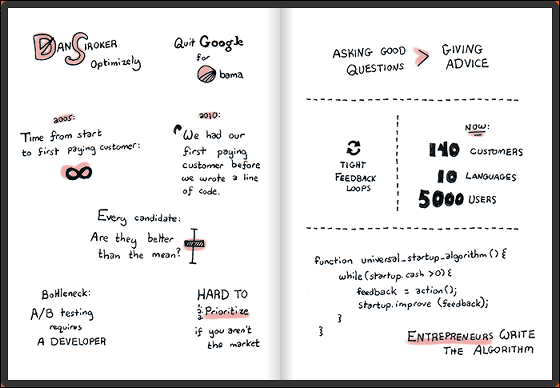 DAN SIROKER
Optimizely
Quit Google
for
Obama
2005:
Time from start
to first paying customer:
∞
2010:
"We had our
first paying
customer before
we wrote a line
of code.
Every candidate:
Are they better
than the mean?
Bottleneck:
A/B testing
requires
A DEVELOPER
HARD TO
1. 2. 3. Prioritize
if you aren't
the market
ASKING GOOD
QUESTIONS
>
GIVING
ADVICE
TIGHT
FEEDBACK
LOOPS
NOW:
140 CUSTOMERS
10 LANGUAGES
5000 USERS
function universal_startup_algorithm() {
while (startup.cash > 0) {
feedback = action();
startup.improve (feedback);
}
}
ENTREPRENEURS WRITE
THE ALGORITHM